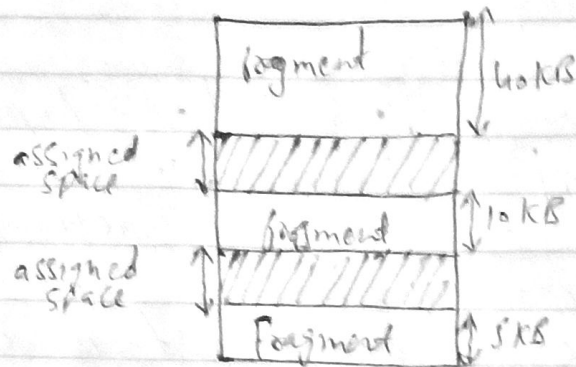 fragment
40KB
assigned
space
fragment
10KB
assigned
space
Fragment
5KB